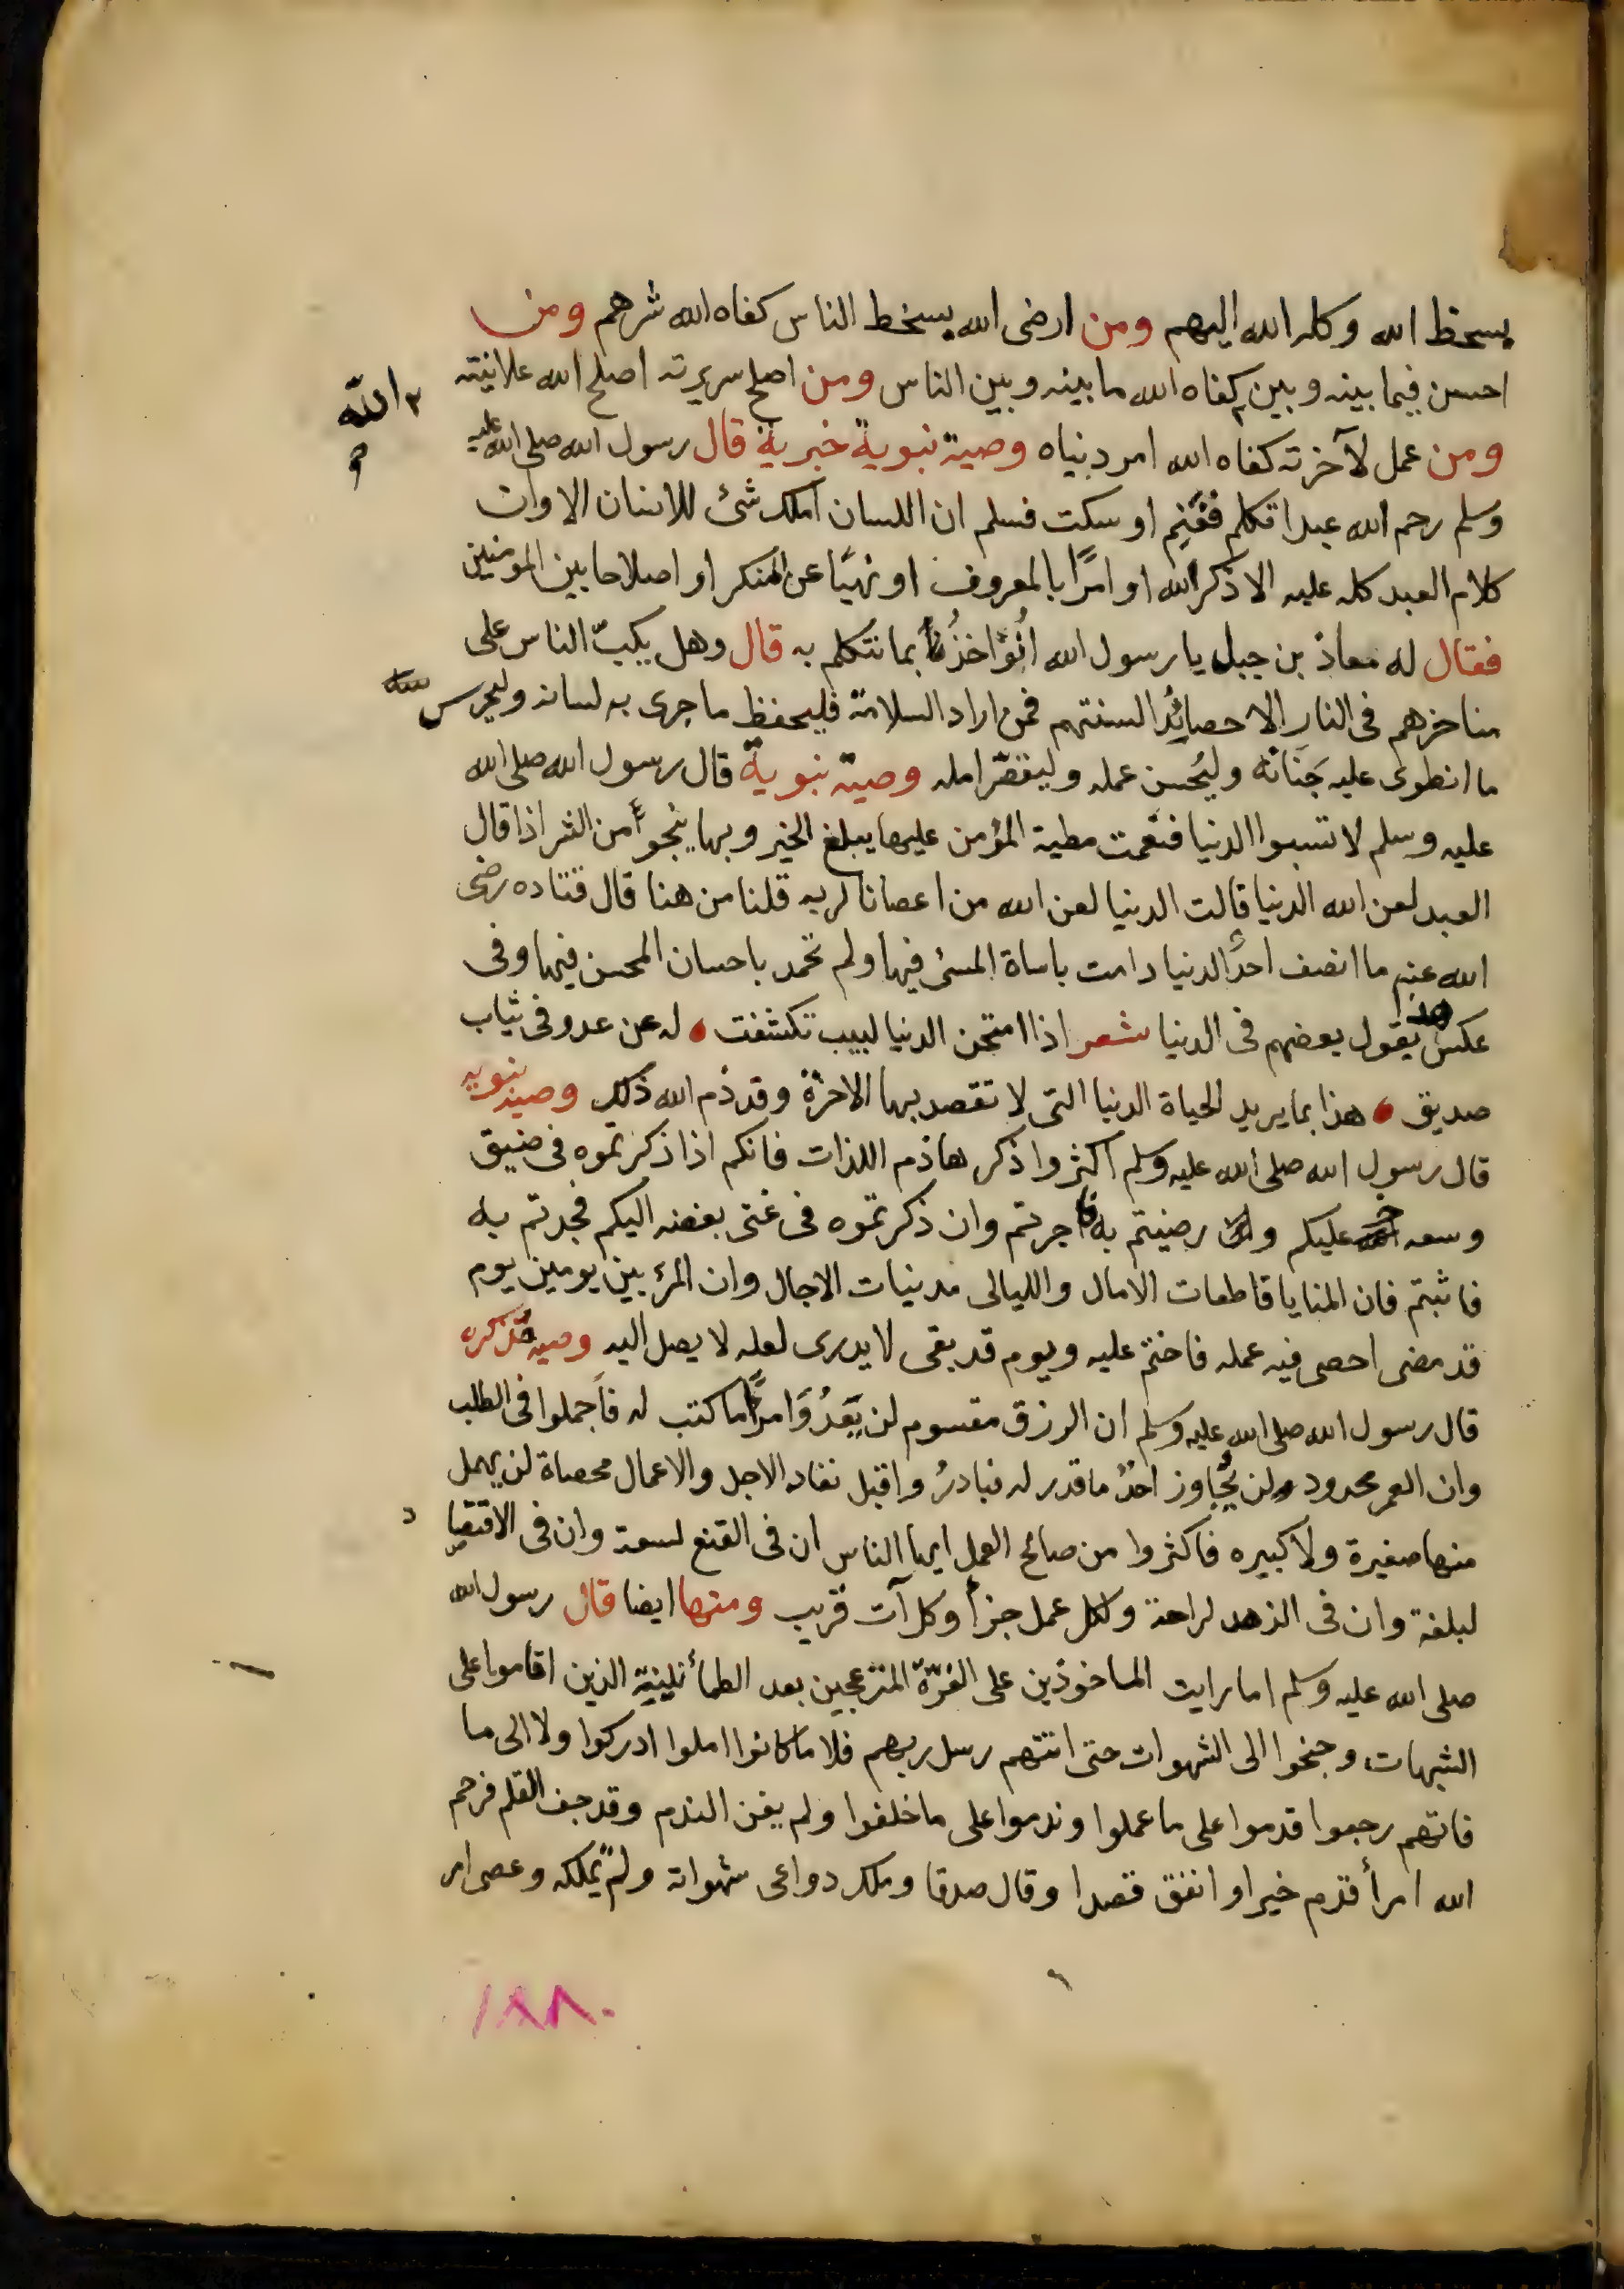 بسخط الله وكله الله اليهم ومن ارضى الله بسخط الناس كفاه الله شرهم ومن
احسن فيما بينه وبين كفاه الله ما بينه وبين الناس ومن اصلح سريرته اصلح الله علانيته
الله
ومن عمل لآخرته كفاه الله امر دنياه وصية نبوية خبرية قال رسول الله صلى الله عليه
وسلم رحم الله عبدا تكلم فغنم او سكت فسلم ان اللسان املك شئ للانسان الا وان
كلام العبد كله عليه الا ذكر الله او امرًا بالمعروف او نهيًا عن المنكر او اصلاحا بين المومنين
فقال له معاذ بن جبل يا رسول الله انُؤاخذُ بما نتكلم به قال وهل يكبّ الناس على
مناخرهم فى النار الا حصائدُ السنتهم فمن اراد السلامة فليحفظ ما جرى به لسانه وليحرس
ما انطوى عليه جَنَانه وليُحسن عمله وليقصّر امله وصية نبوية قال رسول الله صلى الله
عليه وسلم لا تسبوا الدنيا فنعمت مطية المؤمن عليها يبلغ الخير وبها ينجوا من الشر اذا قال
العبد لعن الله الدنيا قالت الدنيا لعن الله من اعصانا لربه قلنا من هنا قال قتاده رضى
الله عنه ما انصف احدٌ الدنيا ذامت باساة المسئ فيها ولم تحمد باحسان المحسن فيها وفى
عكس هذا يقول بعضهم فى الدنيا شعر اذا امتحن الدنيا لبيب تكشفت له عن عدو فى ثياب
صديق هذا بما يريد الحياة الدنيا التى لا تقصد بها الاخرة وقد ذم الله ذلك وصية نبويه
قال رسول الله صلى الله عليه وسلم اكثروا ذكر هاذم اللذات فانكم اذا ذكرتموه فى ضيق
وسعه عليكم رضيتم به فاجرتم وان ذكرتموه فى غنى بغضه اليكم فجدتم به
فاثبتم فان المنايا قاطعات الامال والليالى مدنيات الاجال وان المرء بين يومين يوم
قد مضى احصى فيه عمله فاختم عليه ويوم قد بقى لا يدرى لعله لا يصل اليه وصيه مذكره
قال رسول الله صلى الله عليه وسلم ان الرزق مقسوم لن يَعدُوَ امرًا ما كتب له فاَجملوا فى الطلب
وان العمر محدود لن يُجاوز احدٌ ما قدر له فبادرُوا قبل نفاد الاجل والاعمال محصاة لن يهمل
منها صغيرة ولا كبيره فاكثروا من صالح العمل ايها الناس ان فى القنع لسعة وان فى الاقتصاد
لبلغة وان فى الزهد لراحة ولكل عمل جزأ وكل آت قريب ومنها ايضا قال رسول الله
صلى الله عليه وسلم اما رايت الماخوذين على الغرّة المنزعجين بعد الطمأنينة الذين اقاموا على
الشبهات وجنحوا الى الشهوات حتى اتتهم رسل ربهم فلا ما كانوا املوا ادركوا ولا الى ما
فاتهم رجعوا قدموا على ما عملوا وندموا على ما خلفوا ولم يغن الندم وقد جف القلم فرحم
الله امرأ قدم خيرا وانفق قصدا وقال صدقا وملك دواعى شهواته ولم تملكه وعصى امر